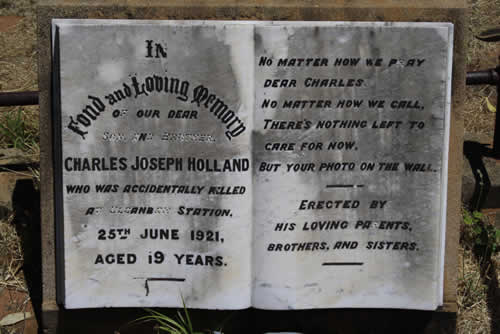 In
Fond and Loving Memory
OF OUR DEAR
SON AND BROTHER,
CHARLES JOSEPH HOLLAND
WHO WAS ACCIDENTALLY KILLED
AT STATION,
25TH JUNE 1921,
AGED 19 YEARS.
NO MATTER HOW WE PRAY
DEAR CHARLES.
NO MATTER HOW WE CALL,
THERE'S NOTHING LEFT TO
CARE FOR NOW,
BUT YOUR PHOTO ON THE WALL.
ERECTED BY
HIS LOVING PARENTS,
BROTHERS, AND SISTERS.